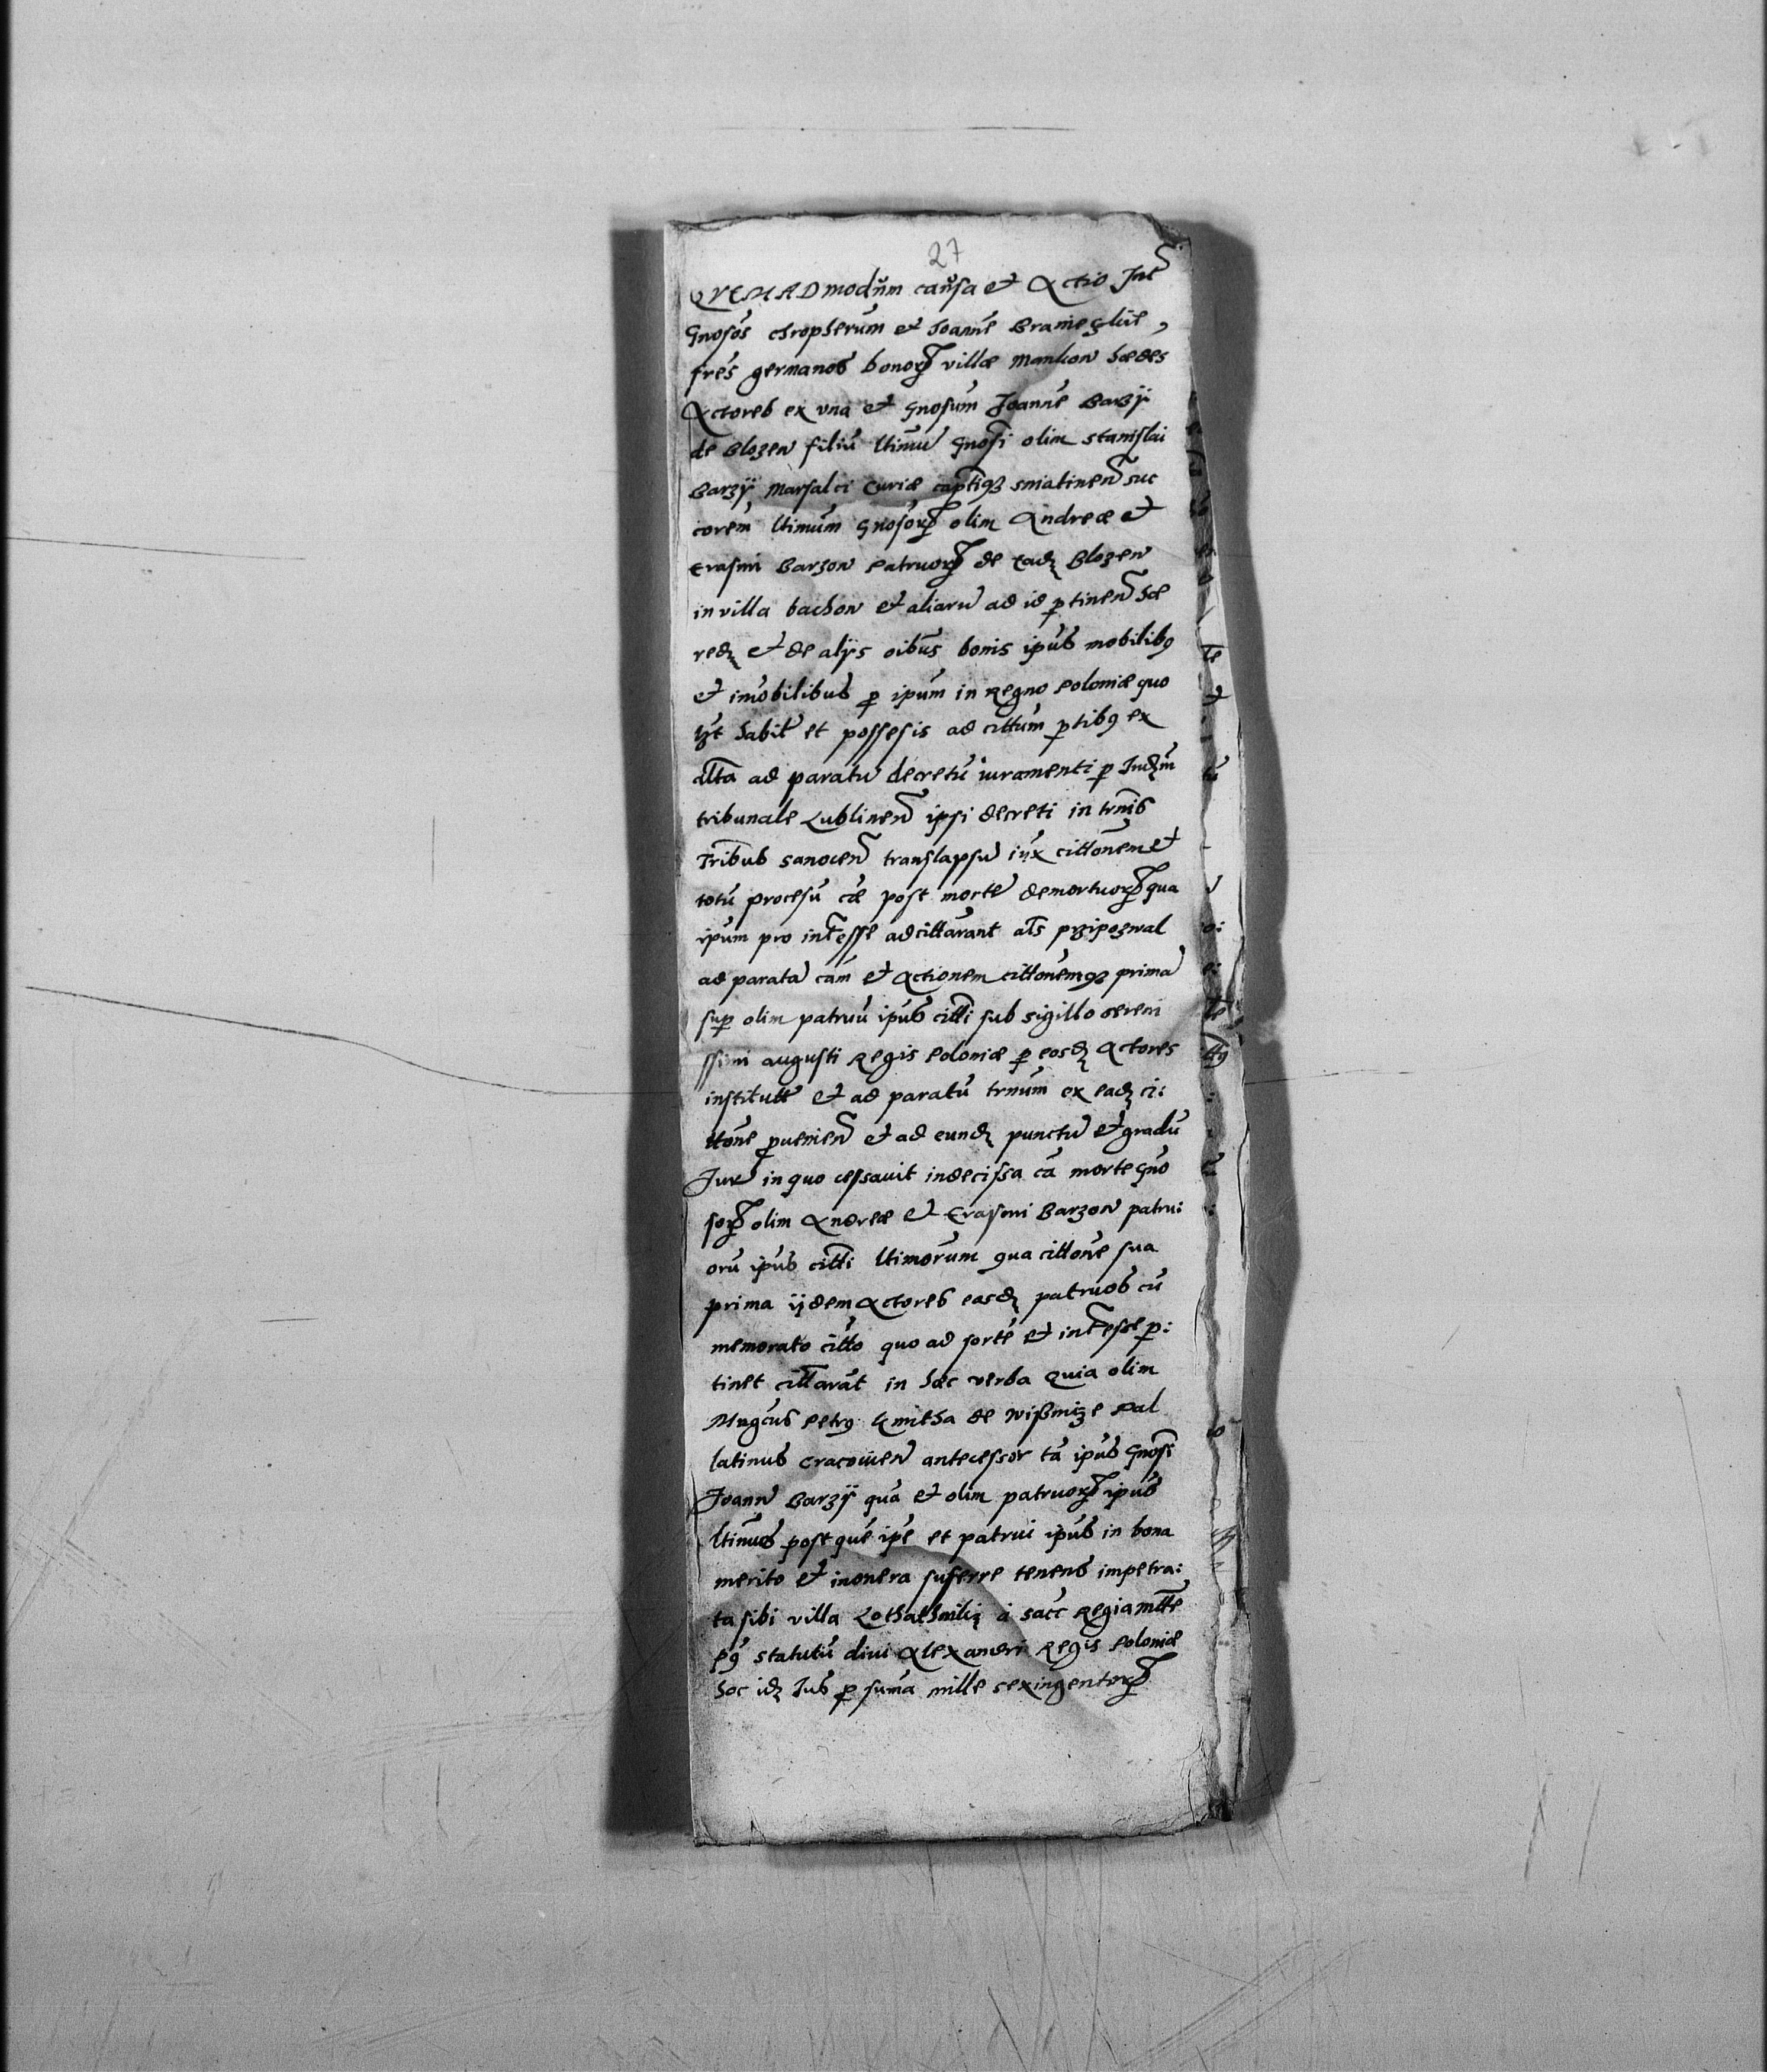 27
QVEMADmodum causa et Actio Int
Gnosos chropherum et Joanne
fres germanos bonor villæ Mankow hædes
Actores ex vna et Gnosum Joanne Barzy
de Blozew filiu ltimu Gnosi olim stanislai
Barzy Marsalci Curiæ captiq sniatinen suc
corem ltimum Gnosor olim Andreæ et
Erasmi Barzow patruor de eadz Blozew
in villa bachow et aliaru ad id ptinen hæ
redz et de alys oibus bonis ipus mobilibq
et imobilibus p ipum in Regno Poloniæ quo
habit et possesis ad cittum ptibq ex
alta ad paratu decretu iuramenti p Judzm
tribunale Lublinen ipsi decreti in trnis
Tribus sanocen translapsu iux cittonem et
totu procesu cæ post morte demortuor qua
ipum pro intesse adcittarant als przipozwal
ad parata cam et Actionem cittonemq prima
sup olim patruu ipus citti sub sigillo sereni
ssimi augusti Regis Poloniæ p eosdz Actores
institutt et ad paratu trnum ex eadz ci:
ttone puenien et ad eundz punctu et gradu
Jur in quo cessauit indecissa ca morte Gno
sor olim Andreæ et Erasmi Barzow patru:
oru ipus citti ltimorum qua cittone sua
prima ijdem Actores easdz patruos cu
memorato citto quo ad sorte et intesse p:
tinet cittarat in hæc verba Quia olim
Mngcus Petrq Kmitha de Wißnize Pal
latinus Cracouien antecessor ta ipus Gnosi
Joann Barzy qua et olim patruor ipus
ltimus post que ipe et patrui ipus in bona
merito et in onera suferre tenens impetra:
ta sibi villa a sacc Regia mtte
pq statutu diui Alexandri Regis Poloniæ
hoc idz Jus p suma mille sexingentor